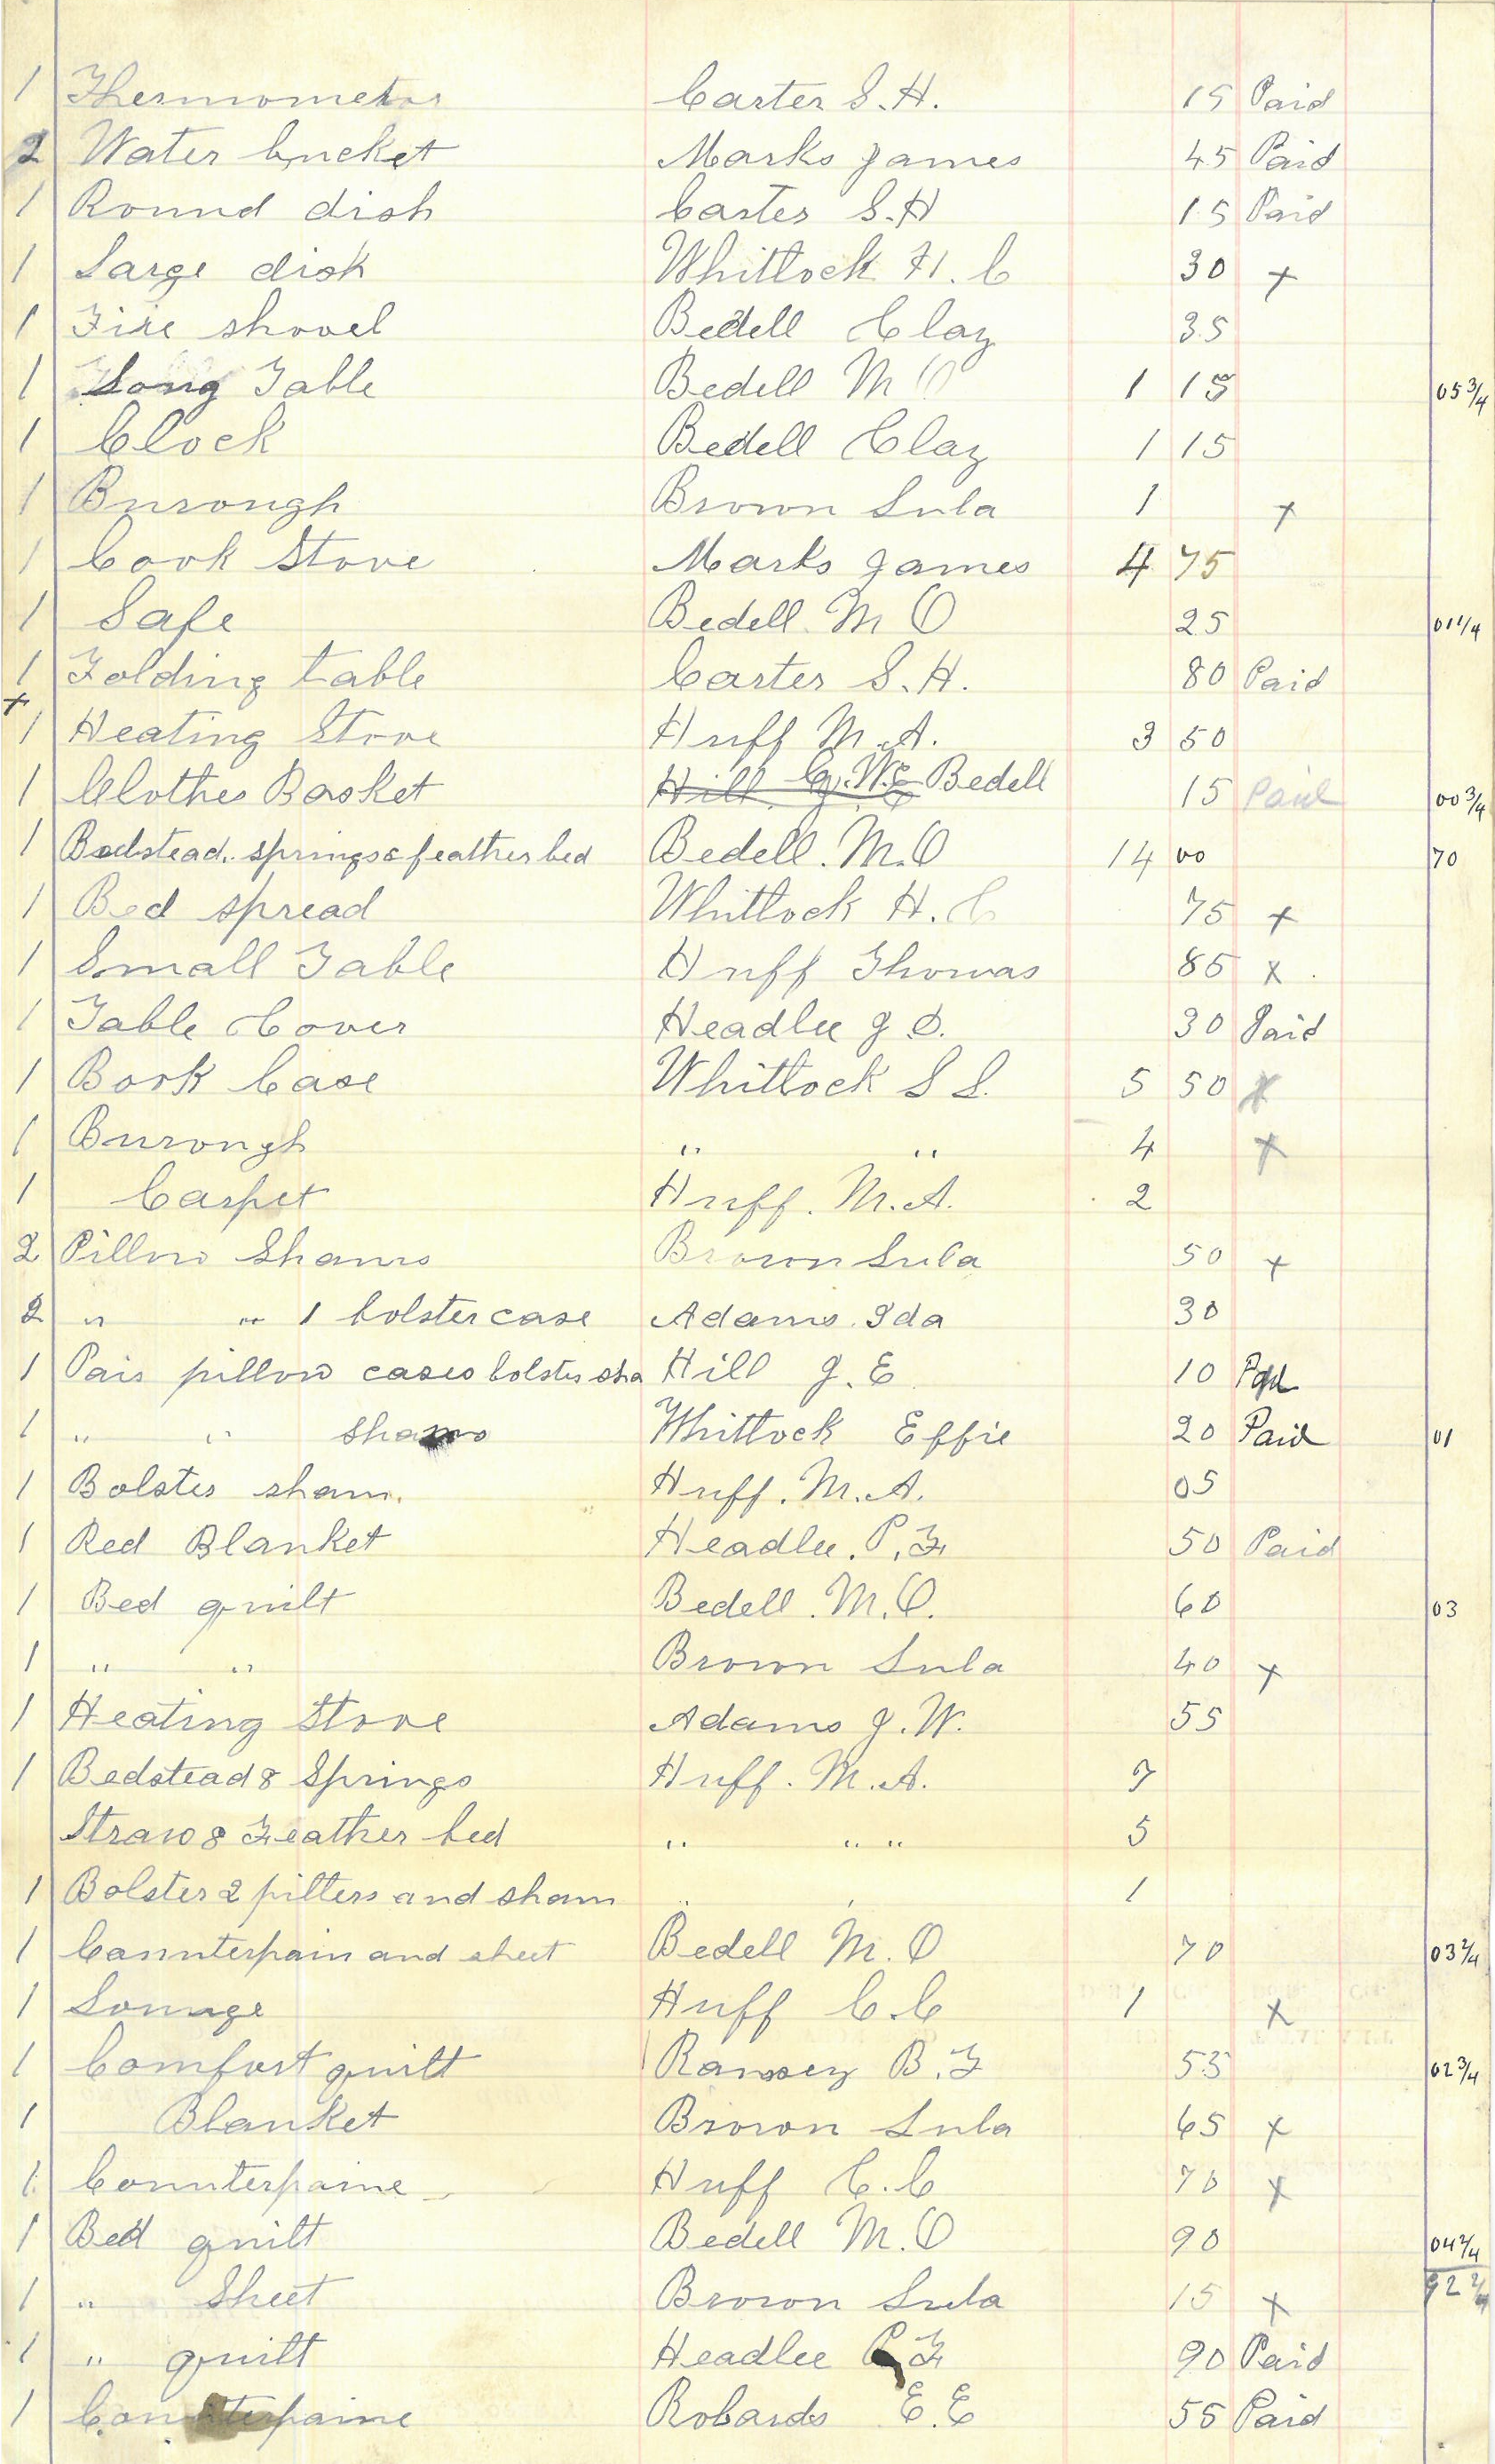 1 Thermometer Carter S.H. 15 Paid
2 Water bucket Marks James 45 Paid
1 Round dish Carter S.H 15 Paid
1 Large dish Whitlock H.C 30 x
1 Fire shovel Bedell Clay 35
1 Long Table Bedell M O 1 15 05 3/4
1 Clock Bedell Clay 1 15
1 Burough Brown Lula 1 x
1 Cook Stove Marks James 4 75
1 Safe Bedell M O 25 01 1/4
1 Folding table Carter S.H. 80 Paid
x 1 Heating Stove Huff M.A. 3 50
1 Clothes Basket Hill Bedell 15 Paid 00 3/4
1 Bedstead, springs & feather bed Bedell. M.O 14 00 70
1 Bed spread Whitlock H.C 75 x
1 Small Table Huff Thomas 85 x
1 Table Cover Headlee J D. 30 Paid
1 Book Case Whitlock S L. 5 50 x
1 Burough " " 4 x
1 Carpet Huff. M.A. 2
2 Pillow Shams Brown Lula 50 x
2 " " 1 bolster case Adams Ida 30
1 Pair pillow cases bolster sha Hill J.E 10 Pad
1 " " shams Whitlock Effie 20 Paid 01
1 Bolster sham. Huff. M.A. 05
1 Red Blanket Headlee. P.F. 50 Paid
1 Bed quilt Bedell. M.O. 60 03
1 " " Brown Lula 40 x
1 Heating Stove Adams J.W. 55
1 Bedstead & Springs Huff. M.A. 7
Straw & Feather bed " " " 5
1 Bolster 2 pillers and sham " " 1
1 Counterpain and sheet Bedell M.O 70 03 2/4
1 Lounge Huff C.C 1 x
1 Comfort quilt Ramsey B.F 55 02 3/4
1 Blanket Brown Lula 65 x
1 Counterpaine Huff C.C 70 x
1 Bed quilt Bedell M.O 90 04 2/4
1 " Sheet Brown Lula 15 x 92 2/4
1 " quilt Headlee P F. 90 Paid
1 Counterpaine Robards E.E 55 Paid